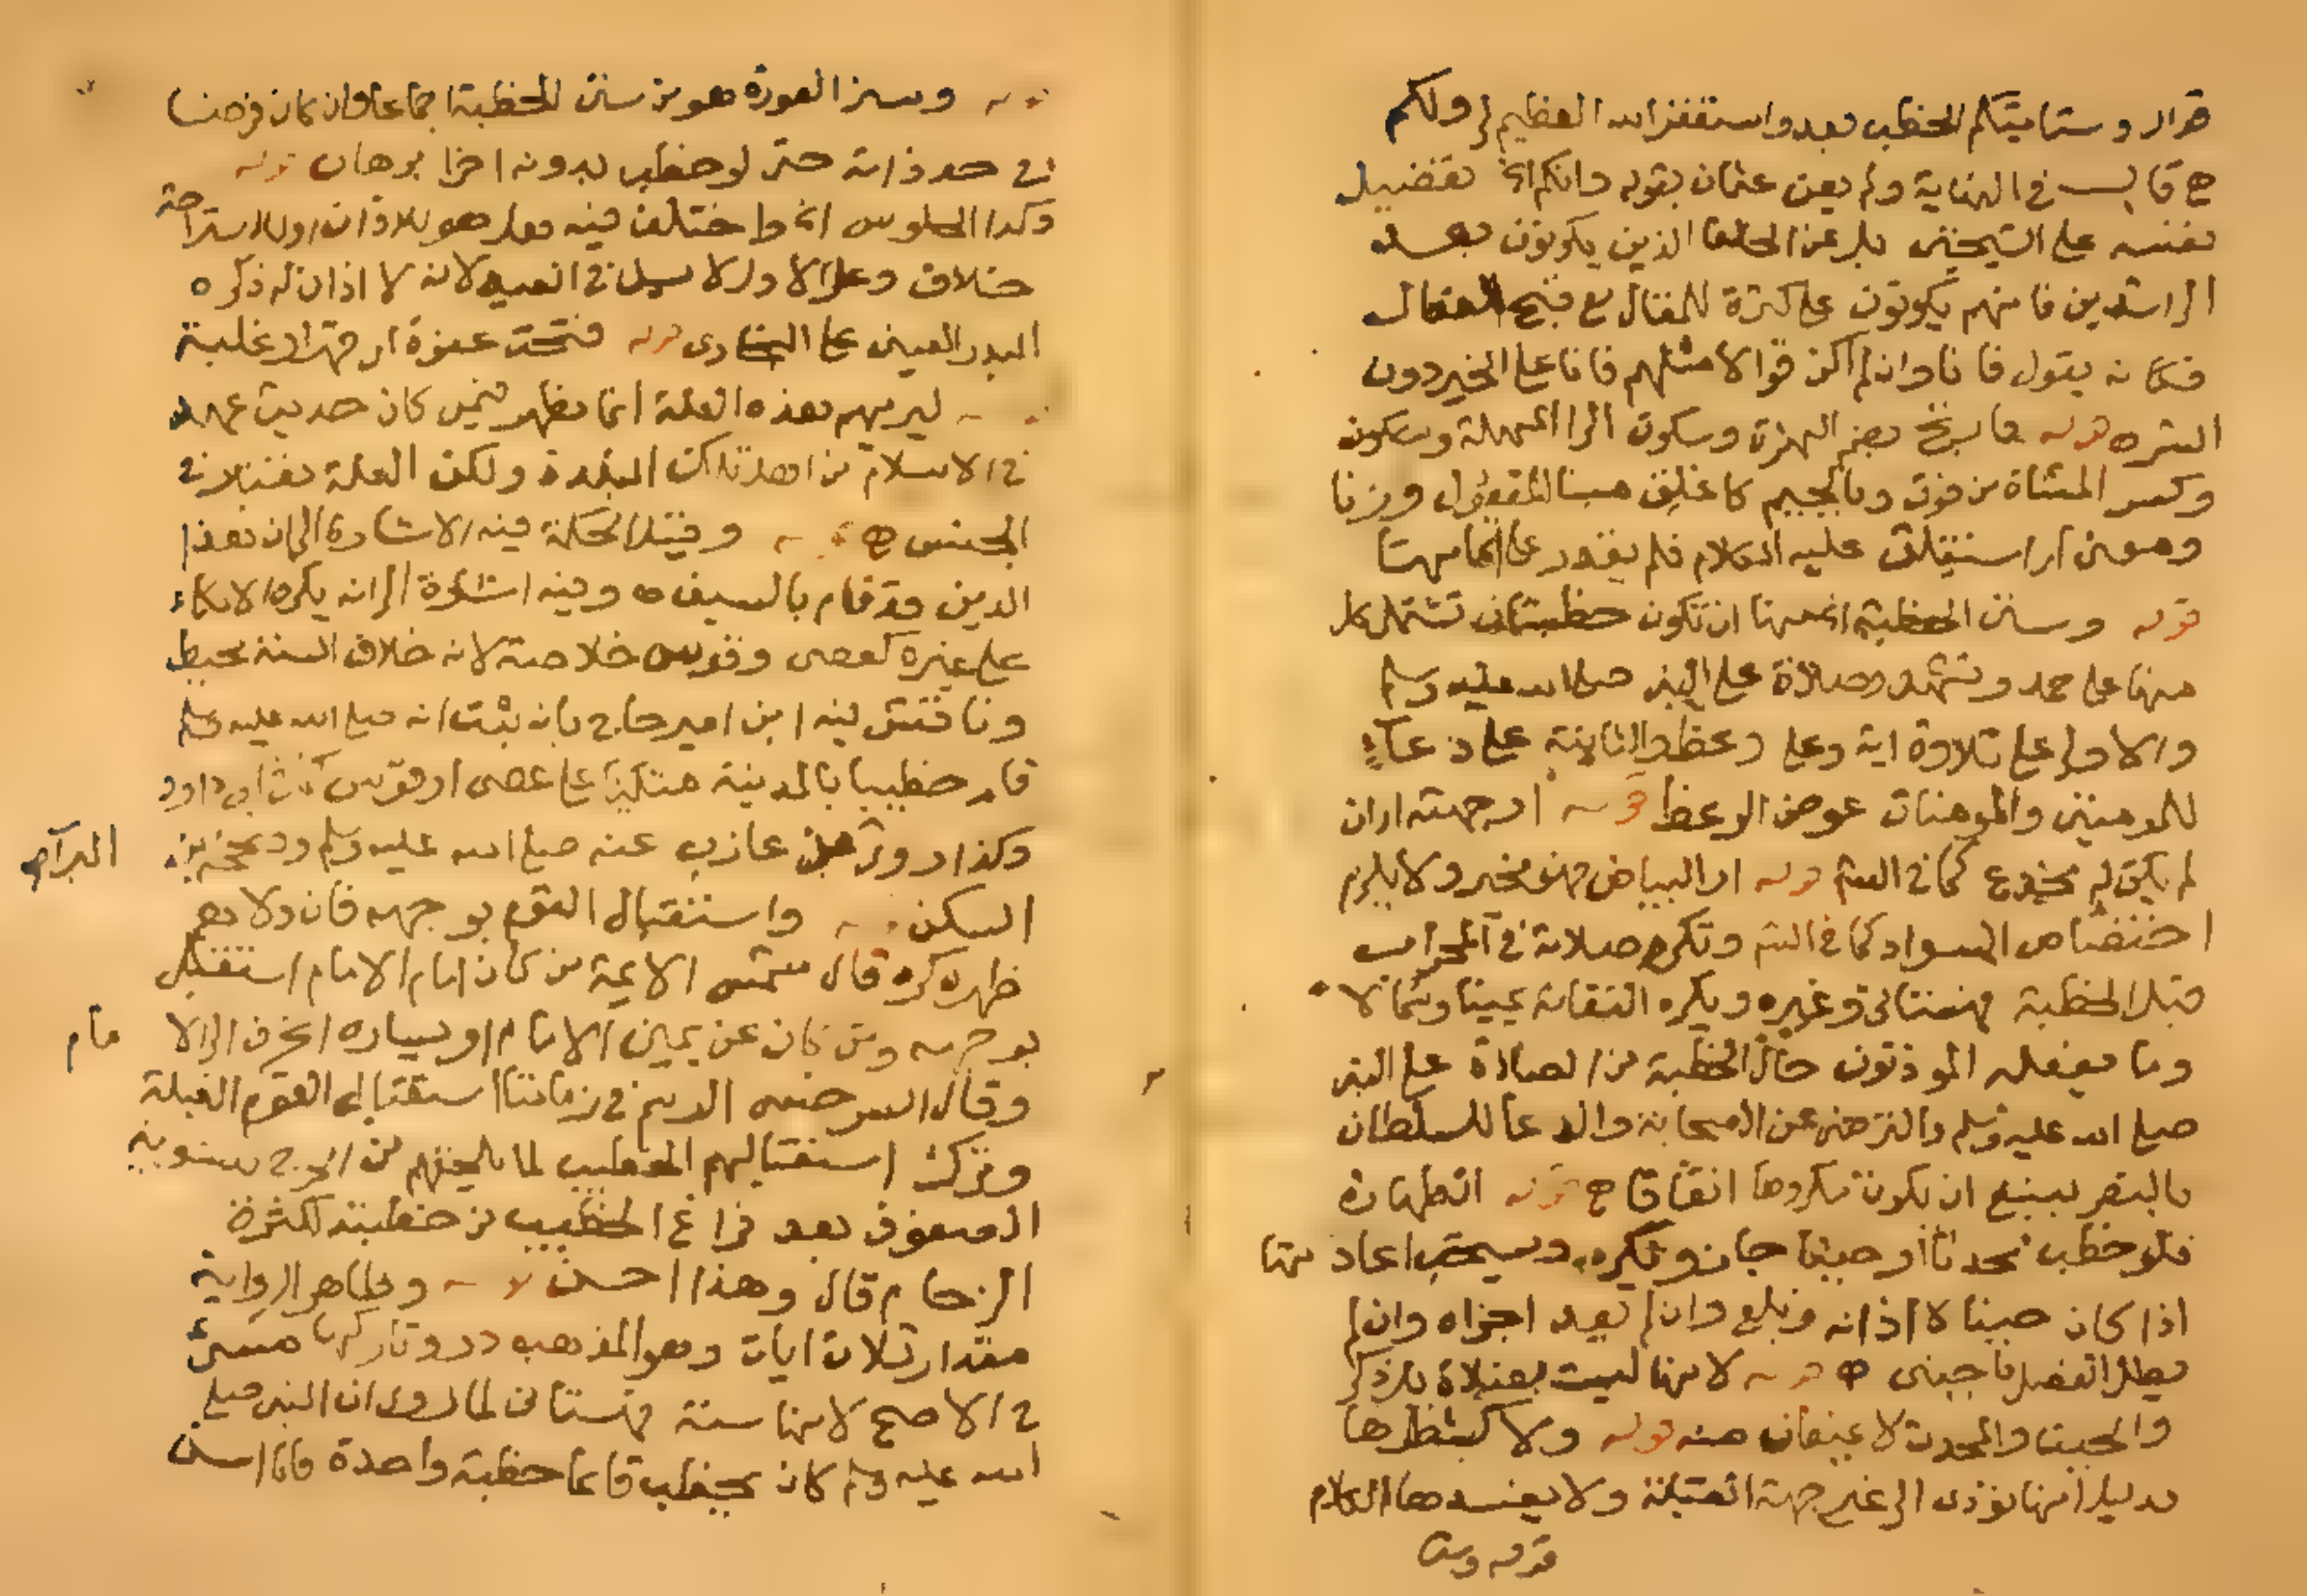 قوال وستاتيكم الخطب بعد واستغفر الله العظيم لي ولكم
ح قال في النهاية ولم يعن عثمان بقوله وانكم الخ تفضيل
نفسه على الشيخين بل عن الخلفا الذين يكونون بعد
الراشدين فانهم يكونون على كثرة المقال مع قبح الفعال
فكانه يقول فانا وان لم اكن قوالا مثلهم فانا على الخير دون
الشر ه قوله فارتج بضم الهمزة وسكون الرا المهملة وسكون
وكسر المثناة من فوق وبالجيم كاغلق مبنيا للمفعول وزنا
ومعنى اي استغلق عليه الكلام فلم يقدر على اتمامها
قوله وسنن الخطبة الخ منها ان تكون خطبتان تشتمل كل
منهما على حمد وتشهد وصلاة على النبي صلى الله عليه وسلم
والاولى على تلاوة اية وعلى وعظ والثانية على دعآء
للمومنين والمومنات عوض الوعظ قوله اي جهته اي ان
لم يكن له مخدع كما في البحر قوله اي البياض فهو مخير ولا يلزم
اختصاص السواد كما في البحر وتكره صلاته في المحراب
قبل الخطبة قهستاني وغيره ويكره التفاته يمينا وشمالا
وما يفعله الموذنون حال الخطبة من الصلاة على النبي
صلى الله عليه وسلم والترضي عن الصحابة والدعا للسلطان
بالنصر ينبغي ان يكون مكروها اتفاقا ح قوله الطهارة
فلو خطب محدثا او جنبا جاز ويكره ويستحب اعادتها
اذا كان جنبا كاذانه وبلع وان لم تعد اجزاه وان لم
يطل الفصل باجنبي ه قوله لانها ليست بصلاة بل ذكر
والجنب والمحدث لا يمنعان منه قوله ولا كشطرها
بدليل انها تؤدى الى غير جهة القبلة ولا يفسدها الكلام
قوله وستر
قوله وستر العورة هو من سنن الخطبة اجماعا وان كان فرضا
في حد ذاته حتى لو خطب بدونه اجزا برهان قوله
وكذا الجلوس الخ واختلف فيه هل هو للاذان او للاستراحة
خلاف وعلى الاول لا يسن في العيد لانه لا اذان له ذكره
البدر العيني على البخاري قوله فتحت عنوة اي قهرا وغلبة
ليريهم هذه العلة انما تظهر فيمن كان حديث عهد
في الاسلام من اهل تلك البلدة ولكن العلة تعتبر في
الجنس ح قوله وقيل الحكمة فيه الاشارة الى ان هذا
الدين قد قام بالسيف ه وفيه اشارة الى انه يكره الاتكاء
على غيره كعصى وقوس خلاصة لانه خلاف السنة محيط
وناقش فيه ابن امير حاج بانه ثبت انه صلى الله عليه وسلم
قام خطيبا بالمدينة متكئا على عصى او قوس كما في ابي داود
وكذا رواه عن عازب عنه صلى الله عليه وسلم وصححه ابن
البرآء
السكن قوله واستقبال القوم بوجهه فان ولاهم
ظهره كره قال شمس الايمة من كان امام الامام استقبل
بوجهه ومن كان عن يمين الامام او يساره انحرف الى الا
مام
وقال السرخسي الرسم في زماننا استقبال القوم القبلة
وترك استقبالهم الخطيب لما يلحقهم من الحرج بتسوية
الصفوف بعد فراغ الخطيب من خطبته لكثرة
الزحام قال وهذا احسن قوله وظاهر الرواية
مقدار ثلاث ايات وهو المذهب در وتاركها مسئ
في الاصح لانها سنة قهستاني لما روي ان النبي صلى
الله عليه وسلم كان يخطب قائما خطبة واحدة فلما اسن